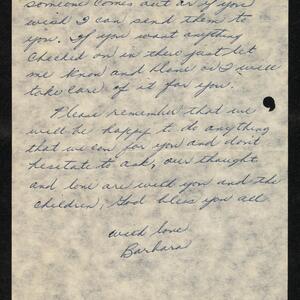 someone comes out or if you
wish I can send them to
you. If you want anything
checked on in there just let
me know and Diane or I will
take care of it for you.
Please remember that we
will be happy to do anything
that we can for you and don't
hesitate to ask, our thought
and love are with you and the
children, God bless you all
with love
Barbara